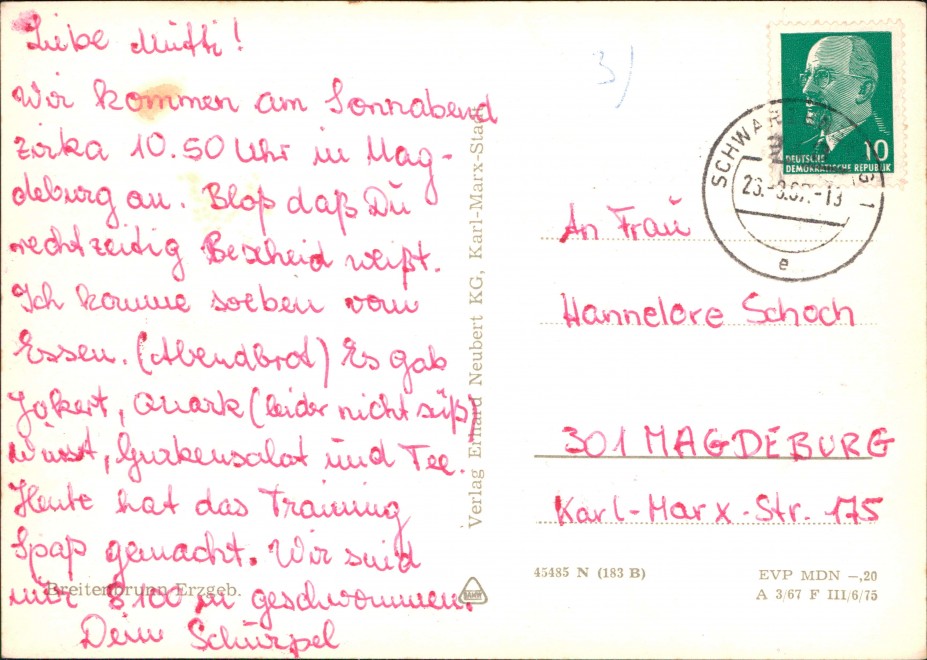 Liebe Mutti!
Wir kommen am Sonnabend
zirka 10.50 Uhr in Mag-
deburg an. Bloß daß Du
rechtzeitig Bescheid weißt.
Ich komme soeben vom
Essen. (Abendbrot) Es gab
Jokert, Quark (leider nicht süß)
Wurst, Gurkensalat und Tee.
Heute hat das Training
Spaß gemacht. Wir sind
nur 8100 m geschwommen.
Dein Schürpel
Breitenbrunn Erzgeb.
Verlag Erhard Neubert KG, Karl-Marx-Stadt
3)
DEUTSCHE
DEMOKRATISCHE REPUBLIK
10
e
An Frau
Hannelore Schoch
301 MAGDEBURG
Karl-Marx-Str. 175
45485 N (183 B)
EVP MDN –,20
A 3/67 F III/6/75